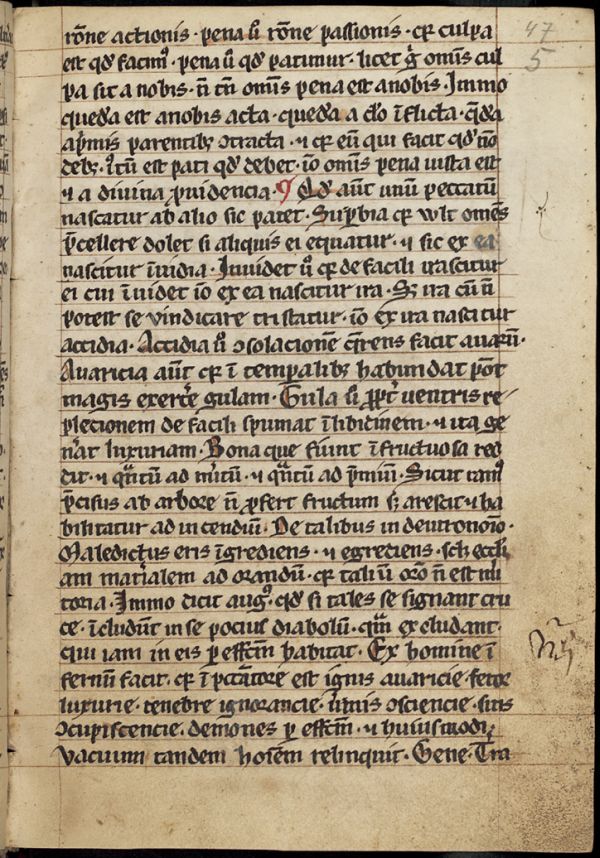 47
5
rōne actionis · pena ū rōne passionis · qr culpa
est qd̄ facimꝰ · pena ū qd̄ patimur · licet gͥ omīs cul
pa sit a nobis · n̄ tn̄ omīs pena est a nobis · Immo
queda est a nobis acta · queda a dō īflicta · q̄da
a pͥmis parentibꝫ ꝯtracta · ⁊ qr eū qui facit qd̄ nō
debꝫ · iustū est pati qd̄ debet · iō omīs pena iusta est
⁊ a diuina ꝓuidencia · ¶ Qd̄ aūt unū peccatū
nascatur ab alio sic patet · Suꝑbia qr wlt omēs
p̄cellere dolet si aliquis ei equatur · ⁊ sic ex ea
nascitur īuidia · Inuidet ū qr de facili irascitur
ei cui īuidet iō ex ea nascitur ira · Sꝫ ira cū n̄
potest se vindicare tristatur · iō ex ira nascitur
accidia · Accidia ū ꝯsolacionē q̄rens facit auarū ·
Auaricia aūt qr ī temꝑalibꝫ habundat pōt
magis exercͤe gulam · Gula ū ꝓpt̄ ventris re
plecionem de facili spumat ī libidinem · ⁊ ita ge
nͤat luxuriam · Bona que fiunt īfructuosa red
dit · ⁊ qͣntū ad mͥitū · ⁊ qͣntū ad p̄miū · Sicut ramꝰ
p̄cisus ab arbore n̄ ꝓfert fructum sꝫ arescit ⁊ ha
bilitatur ad incendiū · De talibus in deutronoīo ·
Maledictus eris īgrediens · ⁊ egrediens · sch eccli
am materialem ad orandū · qr taliū orō n̄ est mͥi
toria · Immo dicit augꝰ · qd̄ si tales se signant cru
ce · īcludūt in se pocius diabolū · qͣm excludant ·
qui iam in eis ꝑ effcm̄ habitat · Ex homine ī
fernū facit · qr ī pctͣore est ignis auaricie · fetor
luxurie · tenebre ignorancie · ꝯsciencie · sitis
ꝯcupiscencie · demōnes ꝑ effcm̄ · ⁊ huiusmodi ·
Vacuum tandem hoīem relinquit · Gene · Tͣra